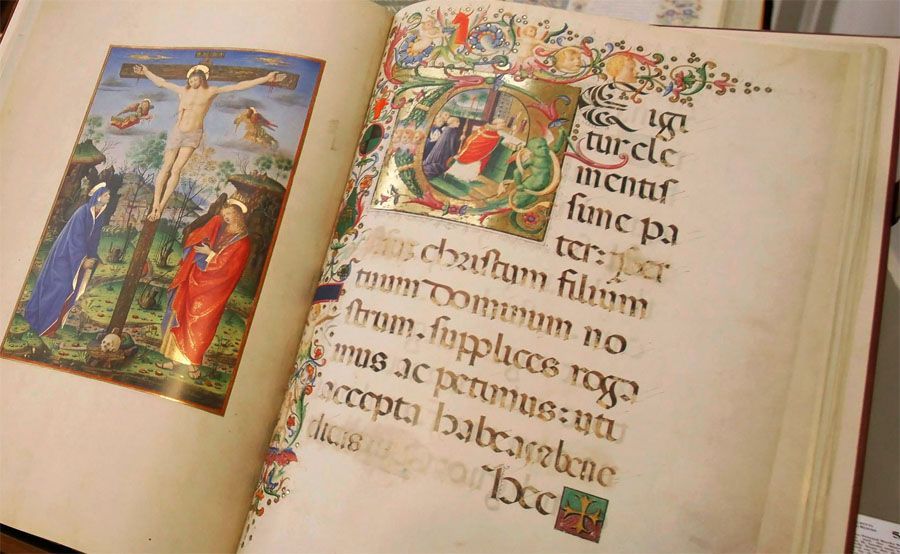 Te igi
tur cle
mentis
sime pa
ter:
christum filium
tuum dominum no
strum. supplices roga
mus ac petimus: uti
accepta habeas et bene
dicas
hec